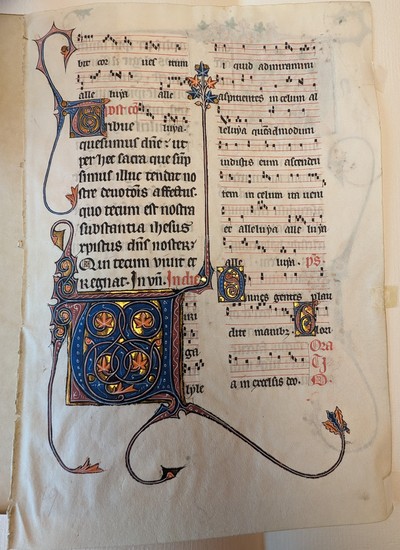 bit cor ues trum
alle luya alle
Post cõ.
Tribue luya.
quesumus dñe ut
per hec sacra que sũp
simus illuc tendat no
stre deuotõis affectus.
quo tecum est nostra
substantia ihesus
xpistus dñs noster.
Qui tecum uiuit et
Regnat. In uñ. In die
iri
ga
lyle
i quid admiramini
aspicientes in celum al
leluya quẽadmodum
uidistis eum ascenden
tem in celum ita ueni
et alleluya alle
luya. ps.
Omnes gentes plau
dite manibz. Glori
Ora
a in excelsis deo.